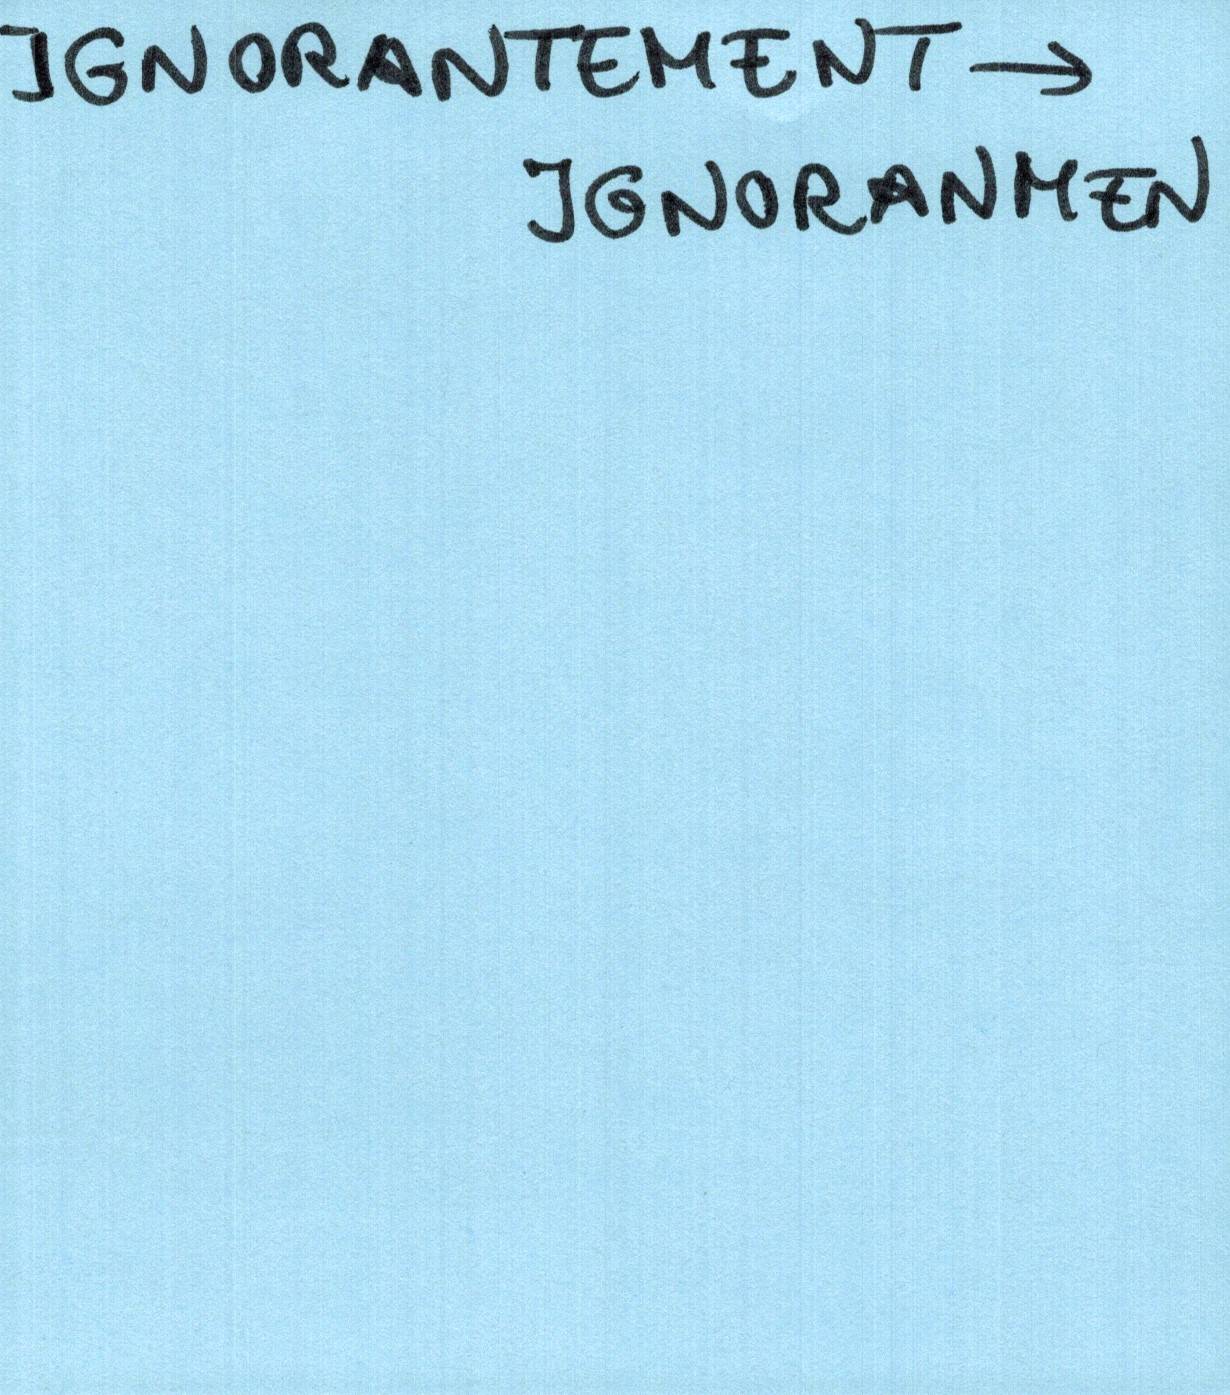 IGNORANTEMENT →
IGNORANMEN